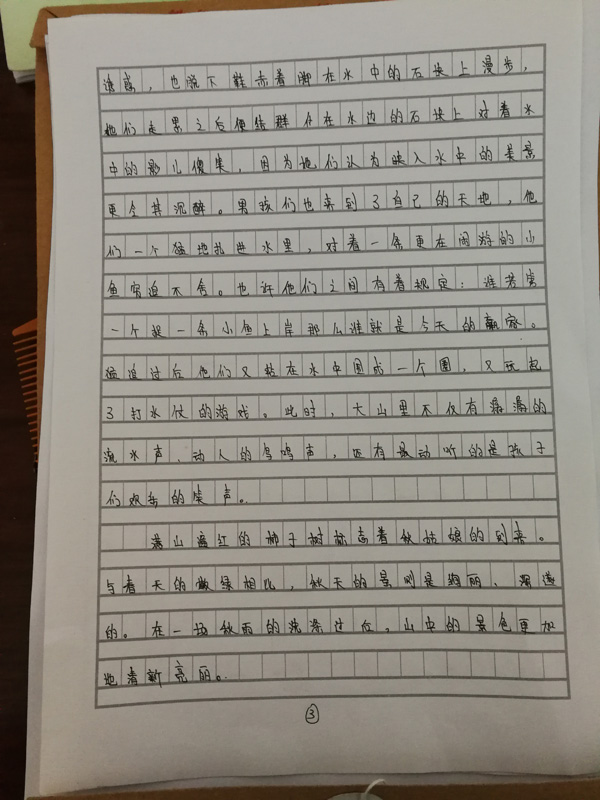 诱惑，也脱下鞋赤着脚在水中的石块上漫步，
她们走累之后便结群在水边的石块上对着水
中的影儿傻笑，因为她们认为映入水中的美景
更令其沉醉。男孩们也来到了自己的天地，他
们一个猛地扎进水里，对着一条更在闲游的小
鱼穷追不舍。也许他们之间有着规定：谁若第
一个捉一条小鱼上岸那么谁就是今天的赢家。
猛追过后他们又站在水中围成一个圈，又玩起
了打水仗的游戏。此时，大山里不仅有潺潺的
流水声、动人的鸟鸣声，还有最动听的是孩子
们欢乐的笑声。
满山遍红的柿子树标志着秋姑娘的到来。
与春天的嫩绿相比，秋天的景则是绚丽、深邃
的。在一场秋雨的洗涤过后，山中的景色更加
地清新亮丽。
③